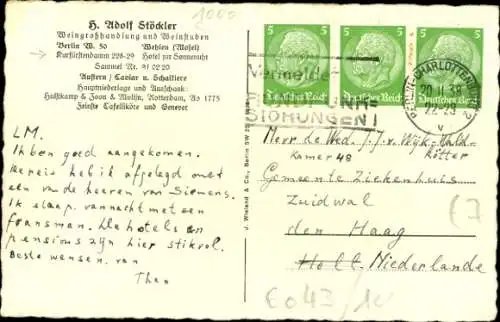 1000
H. Adolf Stöckler
Weingroßhandlung und Weinstuben
Berlin W. 50 Wehlen (Mosel)
Kurfürstendamm 228-29 Hotel zur Sonnenuhr
Sammel Nr. 91 02 20
Austern / Caviar u. Schaltiere
Hauptniederlage und Ausschank:
Hulstkamp & Zoon & Molijn, Rotterdam, As 1775
Feinste Tafelliköre und Genever
LM.
Ik ben goed aangekomen.
De reis heb ik afgelegd met
een van de heeren van Siemens.
Ik slaap vannacht met een
fransman. De hotels en
pensions zijn hier stikvol.
Beste wensen, van
Theo
J. Wieland & Co., Berlin SW
5 5 5
Deutsches Reich Deutsches Reich Deutsches Reich
Vermeidet
RUNDFUNK-
STÖRUNGEN!
BERLIN-CHARLOTTENBURG 2
v
Mevr de Wed. J. J. v. Wijk-Vald-
Kamer 48 Kötter
Gemeente Ziekenhuis
Zuidwal
den Haag
Holl. Niederlande